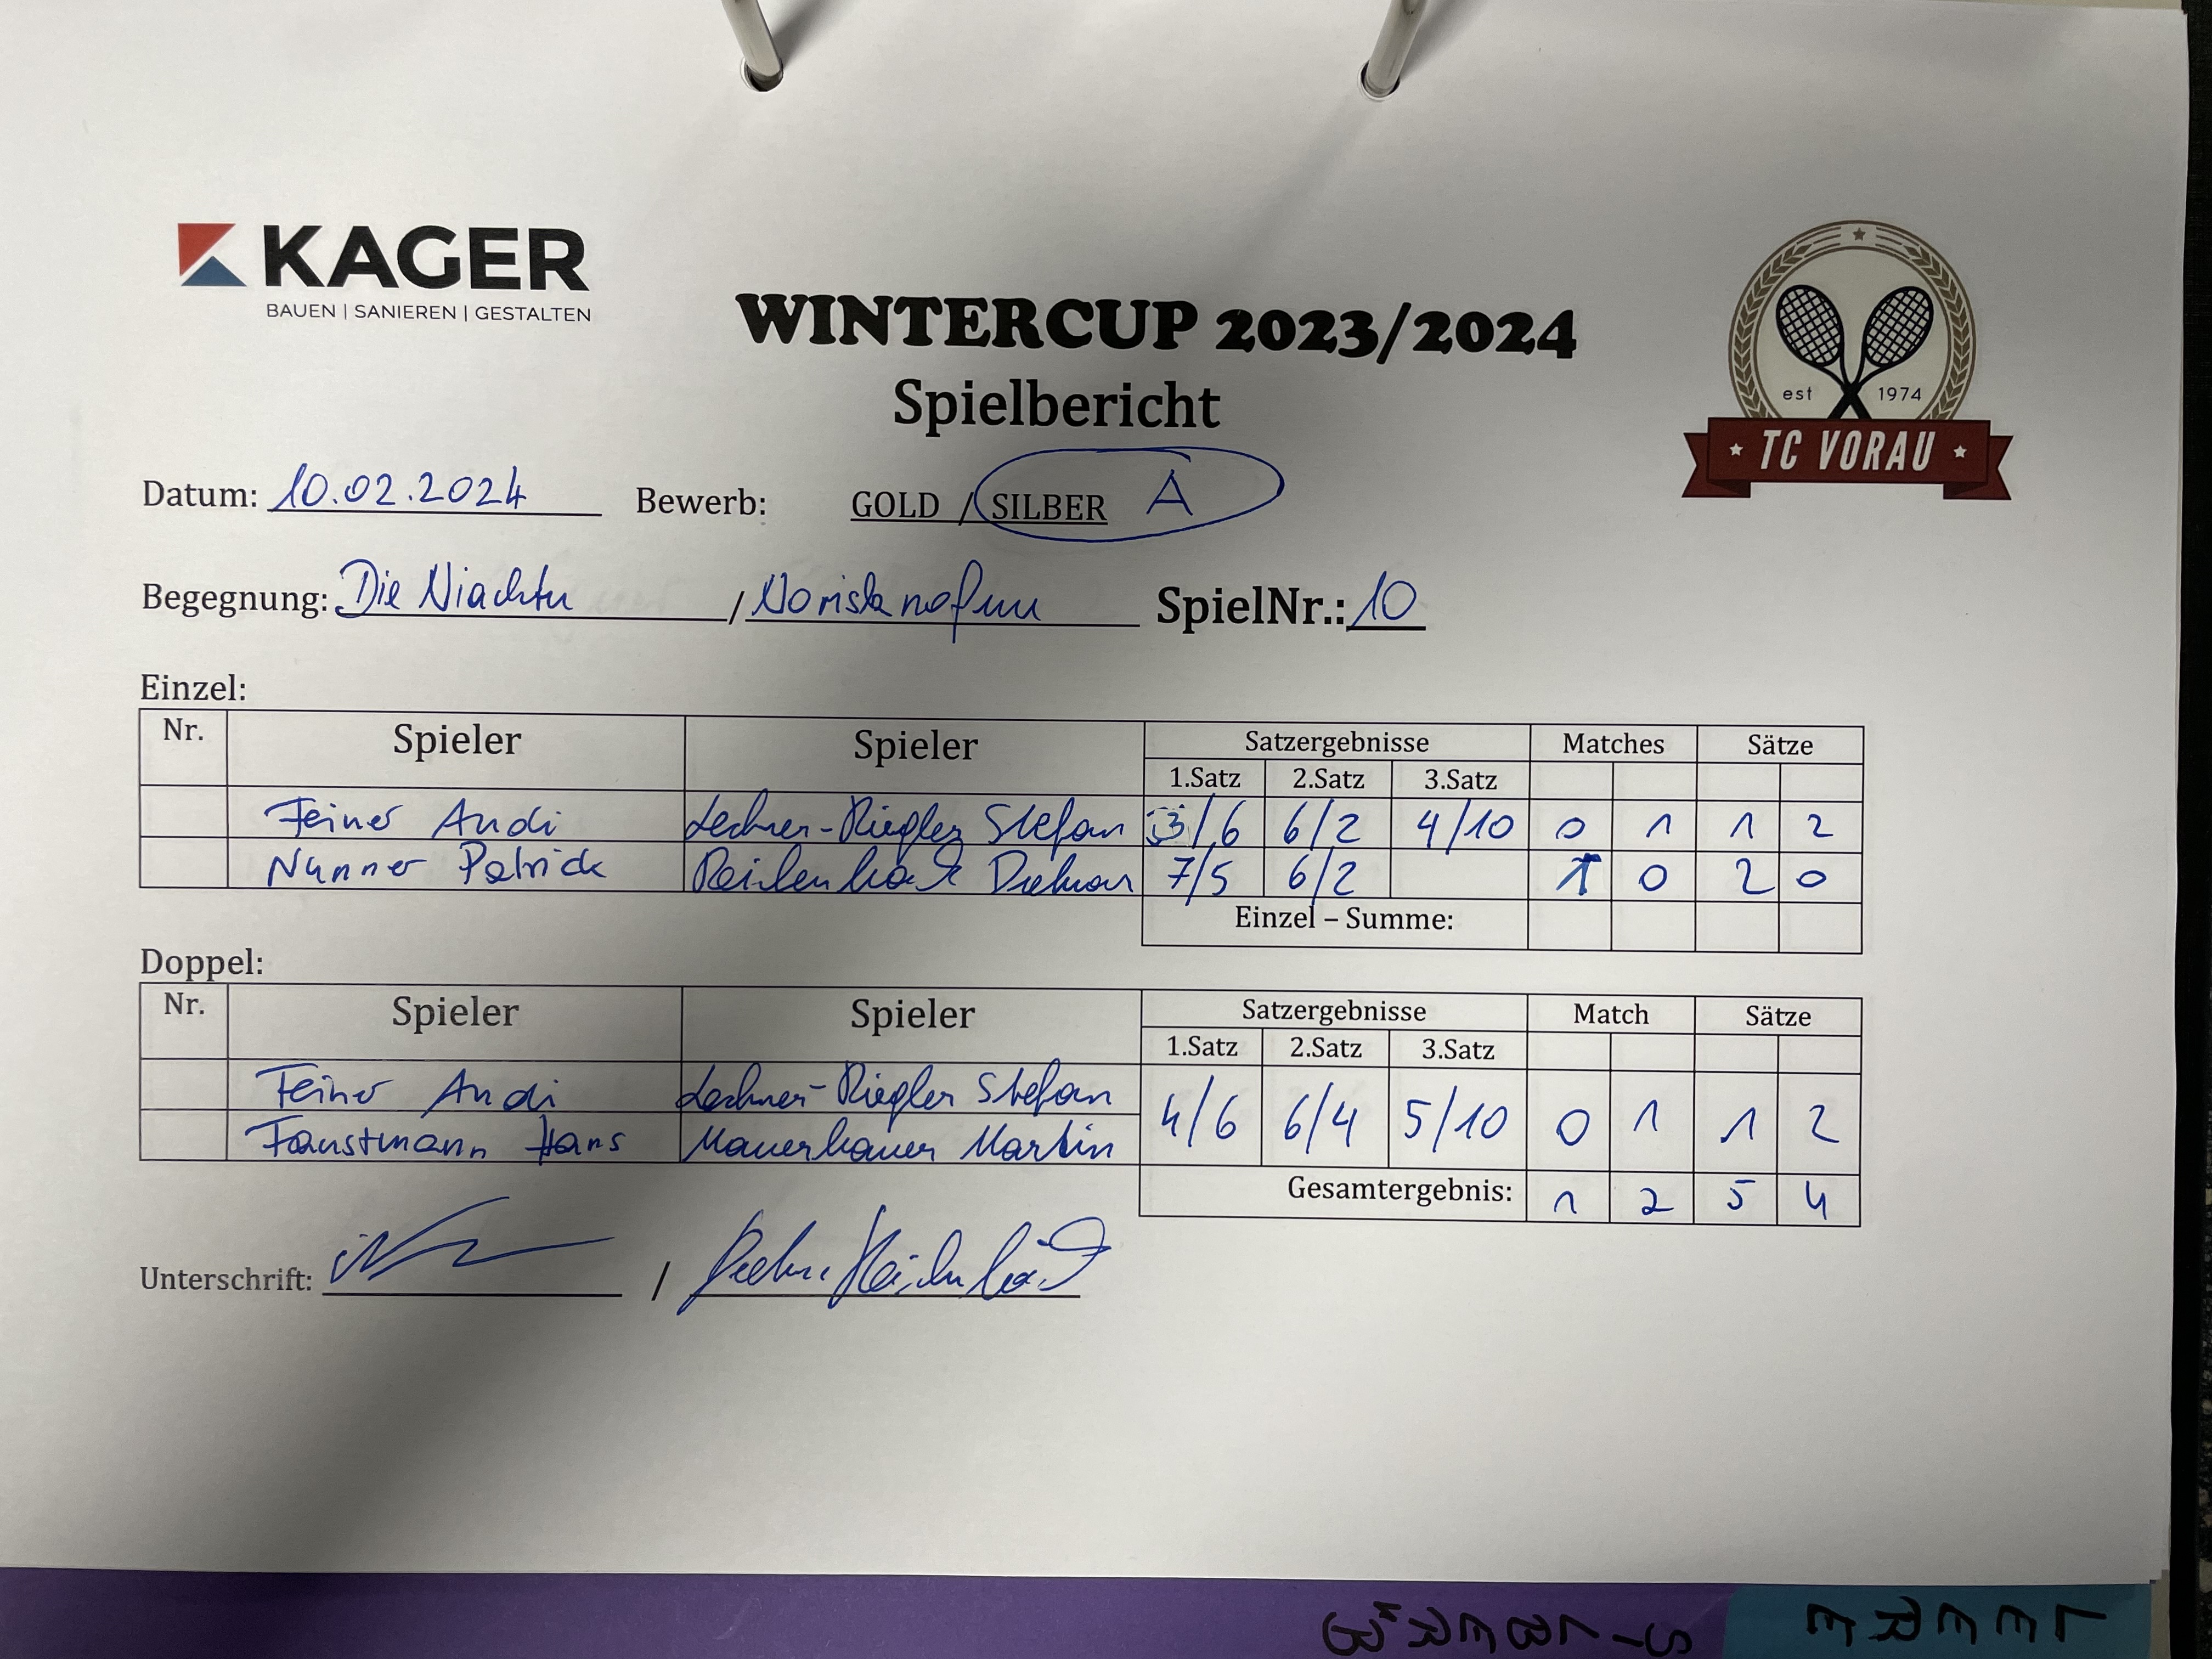 KAGER
BAUEN | SANIEREN | GESTALTEN
WINTERCUP 2023/2024
Spielbericht
est 1974
TC VORAU
Datum: 10.02.2024 Bewerb: GOLD / SILBER A
Begegnung: Die Niachtn / Norisknofun SpielNr.: 10
Einzel:
Nr. Spieler Spieler Satzergebnisse Matches Sätze
1.Satz 2.Satz 3.Satz
Feiner Andi Lechner-Riegler Stefan 3/6 6/2 4/10 0 1 1 2
Nunner Patrick Reitenbach Dietmar 7/5 6/2 1 0 2 0
Einzel – Summe:
Doppel:
Nr. Spieler Spieler Satzergebnisse Match Sätze
1.Satz 2.Satz 3.Satz
Feiner Andi Lechner-Riegler Stefan
4/6 6/4 5/10 0 1 1 2
Faustmann Hans Mauerbauer Martin
Gesamtergebnis: 1 2 5 4
Unterschrift: /
LEERE